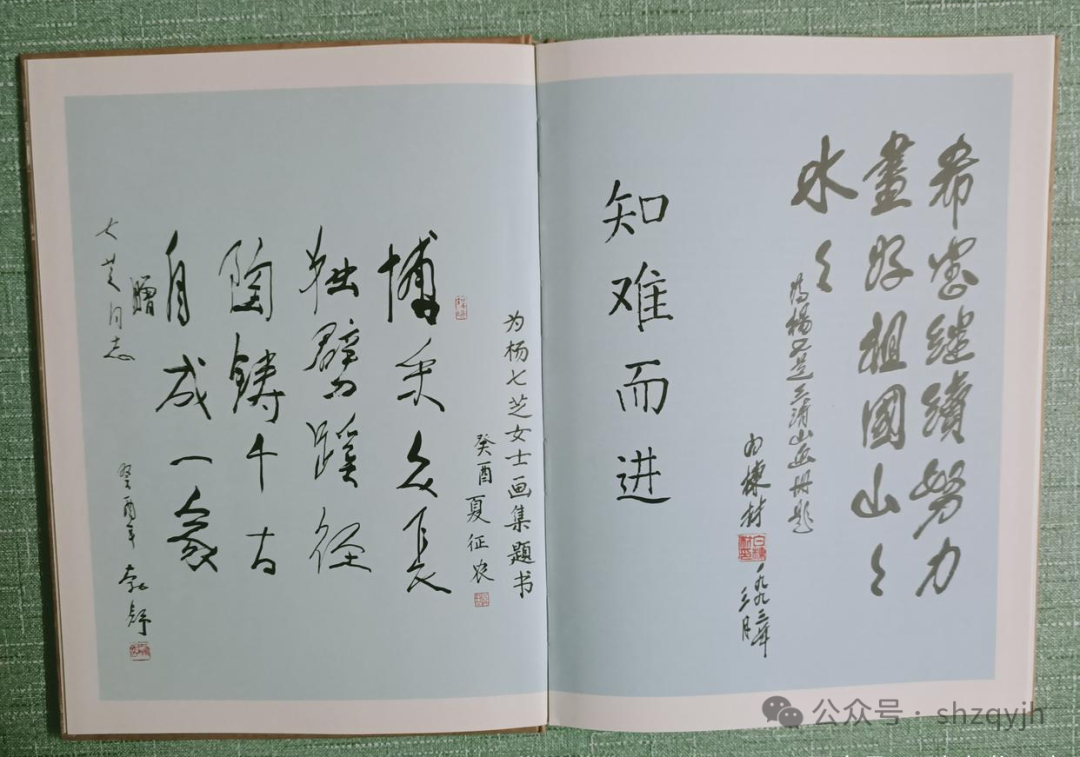 希望继續努力
畫好祖國山々
水々
为楊七芝三清山画册题
白棟材
一九九三年
三月
知难而进
为杨七芝女士画集题书
癸酉夏征农
博采众长
独劈蹊径
陶铸千古
自成一家
赠
七芝同志
癸酉年
公众号·shzqyjh